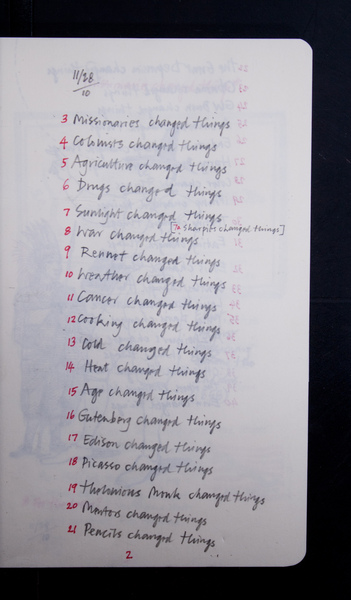 11/28
10
3 Missionaries changed things
4 Colonists changed things
5 Agriculture changed things
6 Drugs changed things
7 Sunlight changed things
[7a Sharpies changed things]
8 War changed things
9 Rennet changed things
10 Weather changed things
11 Cancer changed things
12 Cooking changed things
13 Cold changed things
14 Heat changed things
15 Age changed things
16 Gutenberg changed things
17 Edison changed things
18 Picasso changed things
19 Thelonious Monk changed things
20 Mentors changed things
21 Pencils changed things
2